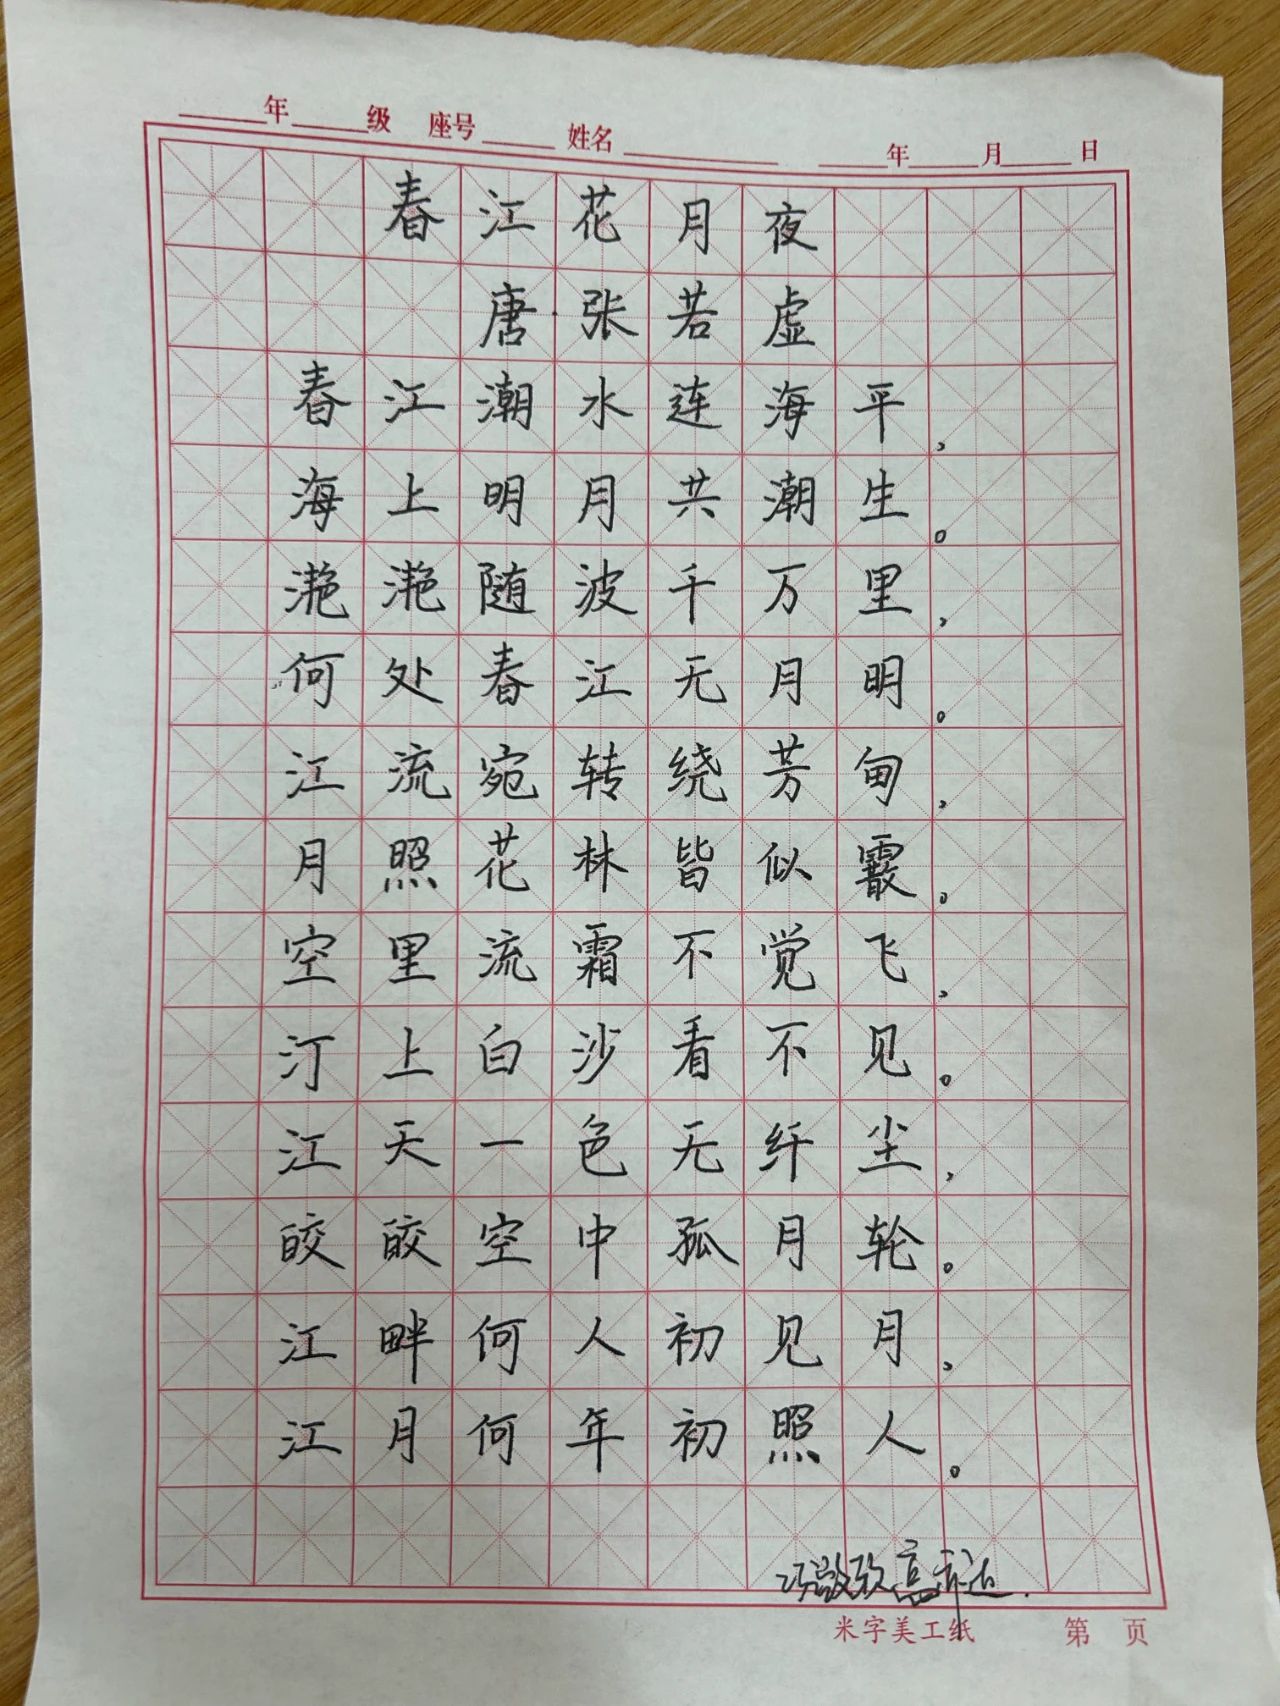 年 级 座号 姓名 年 月 日
春江花月夜
唐·张若虚
春江潮水连海平,
海上明月共潮生。
滟滟随波千万里,
何处春江无月明。
江流宛转绕芳甸,
月照花林皆似霰。
空里流霜不觉飞,
汀上白沙看不见。
江天一色无纤尘,
皎皎空中孤月轮。
江畔何人初见月,
江月何年初照人。
米字美工纸 第 页